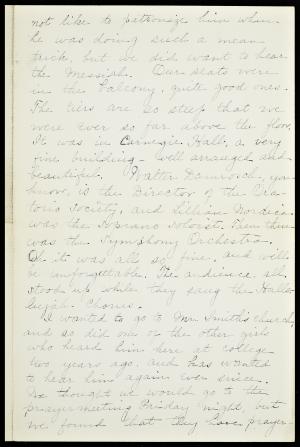 not like to patronize him when
he was doing such a mean
trick, but we did want to hear
the Messiah. Our seats were
in the balcony, quite good ones.
The tiers are so steep that we
were ever so far above the floor.
It was in Carnegie Hall, a very
fine building - well arranged and
beautiful. Walter Damrosch, you
know, is the Director of the Ora-
torio Society, and Lillian Nordica
was the soprano soloist. Then there
was the Symphony Orchestra.
Oh it was all so fine, and will
be unforgettable. The audience all
stood up while they sang the Halle-
lujah Chorus.
I wanted to go to Mr. Smith's church,
and so did one of the other girls
who heard him here at college
two years ago, and has wanted
to hear him again ever since.
We thought we would go to the
prayermeeting Friday night, but
we found that they have prayer-